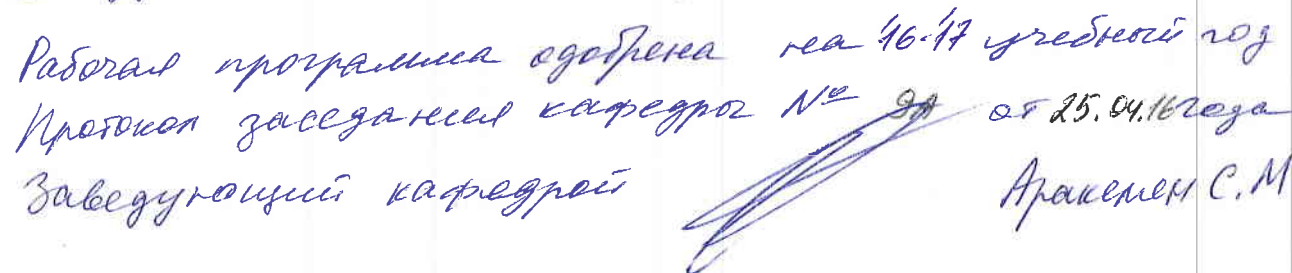 Рабочая программа одобрена на 16-17 учебный год
Протокол заседания кафедры № 9А от 25.04.16 года
Заведующий кафедрой Аракелян С.М